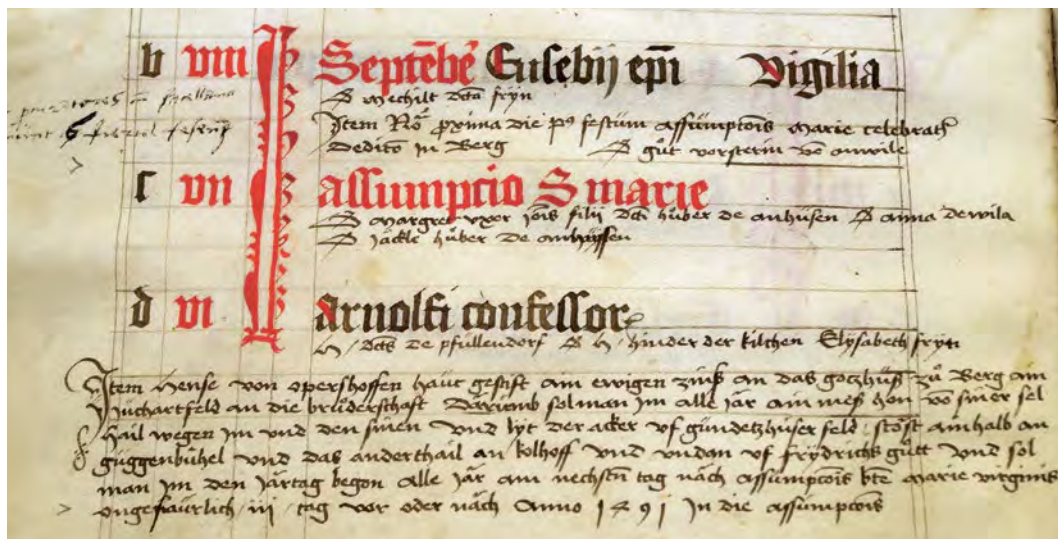 b viiii Septēbe᷒ Eusebij ep̄i Vigilia
Mechilt dcta fryn
Item proxima die festum assumptōis marie celebrat᷒
Dedicto in Berg gůt vorsterin võ
c vii assumpcio S marie
Margret vxor joīs filij dcti hůber de anhusen anna de wila
jäckle hůber de anhussen
d vi arnolfi confessor
H dcts de pfullendorf H hinder der kilchen Elysabeth fryn
Item Hense von opershoffen haut gestift ain ewigen zinß an das goczhuß zů Berg ain
Juchartfeld an die brůderschaft Darumb sol man im alle jär ain meß hon võ siner sel
hail wegen im vnd den sinen vnd lyt der acker vf gündetzhuser feld stost ainhalb an
guggenbühel vnd das anderthail an kolhoff vnd vndan vf frydrichs gůtt vnd sol
man jm den jartag begon alle jär am nechstn tag näch assumptōis bte marie virginis
ongefaurlich iii tag vor oder näch Anno 1491 In die assumptōis